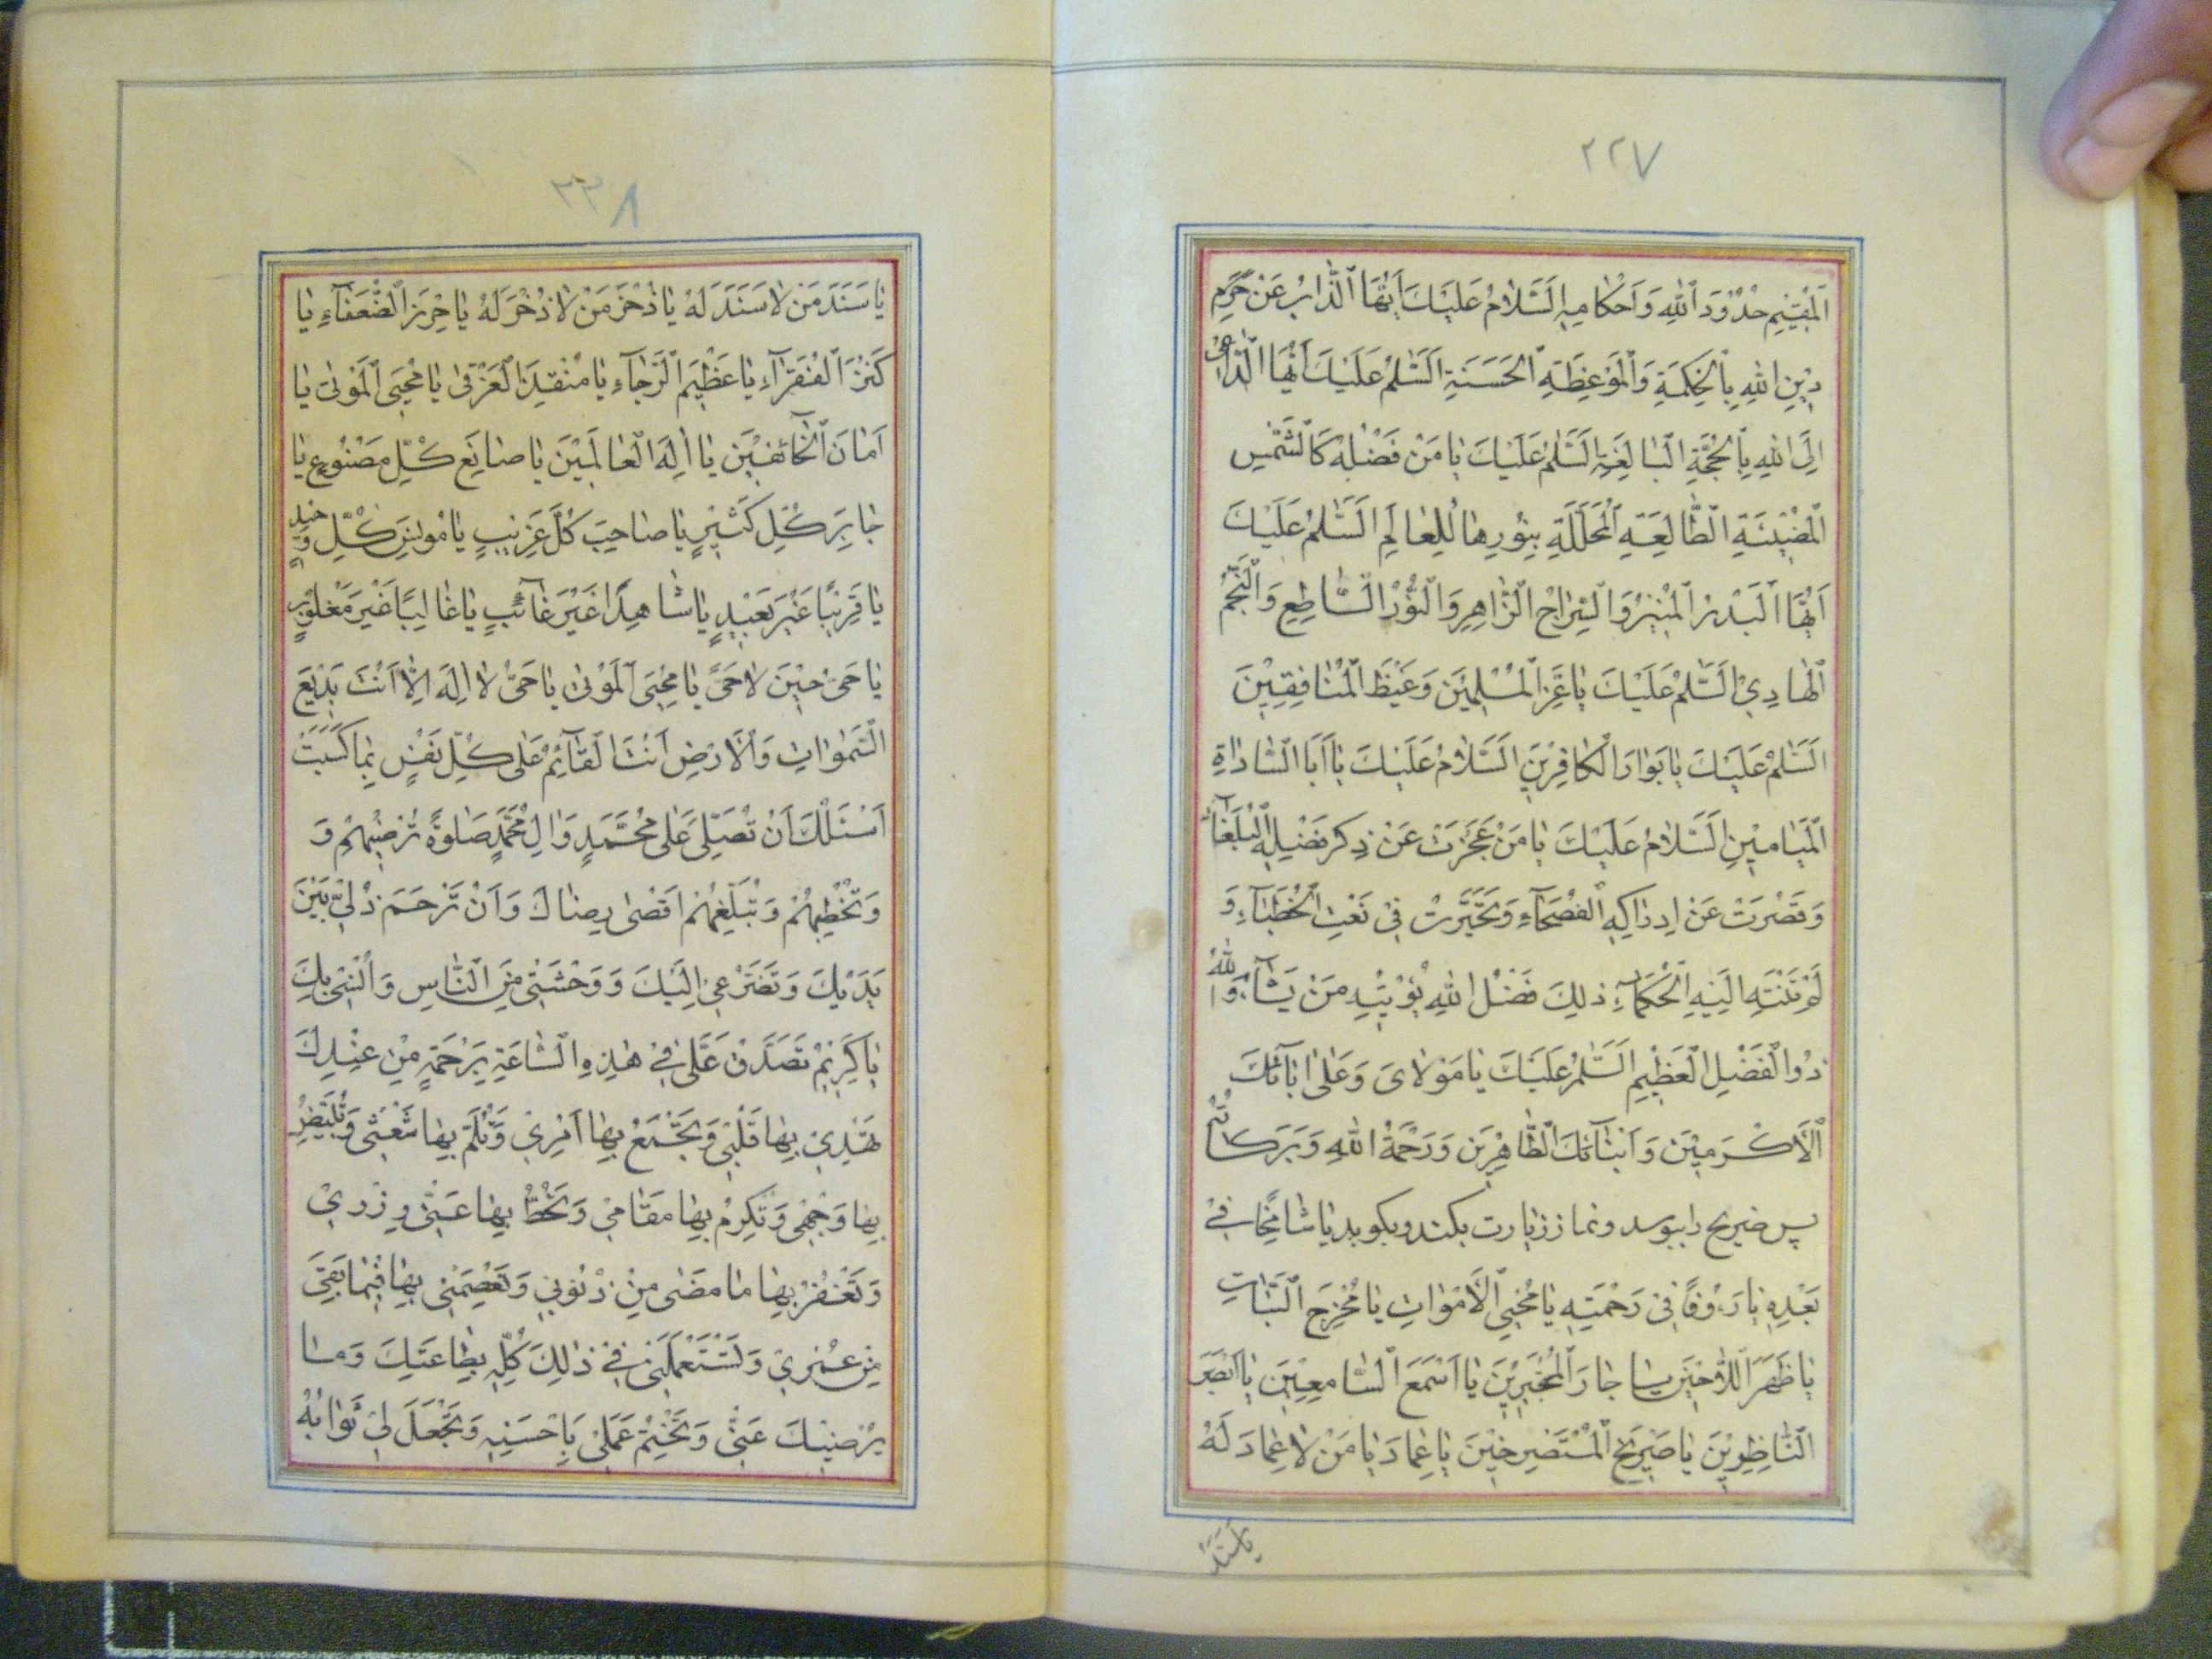 ٢٢٧
اَلْمُقیٖمِ حُدُوُدَ ٱللّٰهِ وَ اَحْکامِهِ اَلسَّلامُ عَلَیْكَ اَیُّهَا ٱلذّابُّ عَنْ حَرَمِ
دیٖنِ اللّٰهِ بِالْحِکْمَةِ وَٱلْمَوْعِظَةِ ٱلْحَسَنَةِ اَلسَّلٰمُ عَلَیْكَ اَیُّهَا ٱلدّٰاعیٖ
اِلَی اللّٰهِ بِالْحُجَّةِ الْبٰالِغَةِ اَلسَّلٰمُ عَلَیْكَ یٰا مَنْ فَضْلُهُ کَالشَّمْسِ
اَلْمُضیٖئَةِ الطّٰالِعَةِ ٱلْمُجَلِّلَةِ بِنُورِهٰا لِلْعٰالَمِ اَلسَّلٰمُ عَلَیْكَ
اَیُّهَا ٱلْبَدْرُ ٱلْمُنیٖرُ وَ السِّرٰاجُ الزّٰاهِرِ وَ النُّوْرُ السّٰاطِعِ وَ النَّجْمُ
ٱلْهٰادِیْ اَلسَّلٰمُ عَلَیْكَ یٰا عِزَّ ٱلْمُسْلِمیٖنَ وَغَیْظَ ٱلْمُنٰافِقِیْنَ
اَلسَّلٰمُ عَلَیْكَ یٰا بَوٰارَ الْکٰافِرِیْنَ اَلسَّلٰامُ عَلَیْكَ یٰا اَبَا السّٰادٰاةِ
اَلْمَیٰامیٖنِ اَلسَّلٰامُ عَلَیْكَ یٰا مَنْ عَجَزَتْ عَنْ ذِکْرِ فَضیٖلِهِ ٱلْبُلَغٰآءُ
وَ قَصُرَتْ عَنْ اِدْرٰاکِهِ ٱلْفُصَحٰآءُ وَ تَحَیَّرَتْ فیٖ نَعْتِ الْخُطَبٰآءِ وَ
لَمْ تَنْتَهِ اِلَیْهِ الْحُکَمٰآءُ ذٰلِكَ فَضْلُ اللّٰهِ یُؤْتیٖهِ مَنْ یَشٰآءُ وَاللّٰهُ
ذُوا الْفَضْلِ الْعَظیٖمِ اَلسَّلٰمُ عَلَیْكَ یٰا مَوْلٰایَ وَ عَلٰی اٰبٰآئِكَ
ٱلْاَکْرَمیٖنَ وَ اَبْنٰآئِكَ الطّٰاهِرِیْنَ وَ رَحْمَةُ اللّٰهِ وَ بَرَکٰاتُهُ
پس ضریح را ببوسد و نماز زیارت بکند و بکوید یٰا شٰامِخًا فیٖ
بُعْدِهِ یٰا رَءُوْفًا فیٖ رَحْمَتِهِ یٰا مُحْیِیَ ٱلْاَمْوٰاتِ یٰا مُخْرِجَ النَّبٰاتِ
یٰا ظَهْرَ اللّٰاجیٖنَ یٰا جٰارَ ٱلْمُسْتَجیٖرِیْنَ یٰا اَسْمَعَ السّٰامِعیٖنَ یٰا اَبْصَرَ
النّٰاظِرِیْنَ یٰا صَریٖخَ ٱلْمُسْتَصْرِخیٖنَ یٰا عِمٰادَ یٰا مَنْ لٰا عِمٰادَ لَهُ
یٰا سَنَدَ
٢٢٨
یٰا سَنَدَ مَنْ لٰا سَنَدَ لَهُ یٰا ذُخْرَ مَنْ لٰا ذُخْرَ لَهُ یٰا حِرْزَ ٱلضُّعَفٰآءِ یٰا
کَنْزَ ٱلْفُقَرٰآءِ یٰا عَظیٖمَ ٱلرَّجٰآءِ یٰا مُنْقِذَ الْغَرْقیٰ یٰا مُحْیِیَ ٱلْمَوْتیٰ یٰا
اَمٰانَ ٱلْخٰآئِفیٖنَ یٰا اِلٰهَ الْعٰالَمیٖنَ یٰا صٰانِعَ کُلِّ مَصْنُوعٍ یٰا
جٰابِرَ کُلِّ کَسیٖرٍ یٰا صٰاحِبَ کُلِّ غَرِیٖبٍ یٰا مُونِسَ کُلِّ وَحیٖدٍ
یٰا قَرِیٖبًا غَیْرَ بَعیٖدٍ یٰا شٰاهِدًا غَیْرَ غٰآئِبٍ یٰا غٰالِبًا غَیْرَ مَغْلُوْبٍ
یٰا حَیُّ حیٖنَ لٰا حَیَّ یٰا مُحْیِیَ ٱلْمَوْتیٰ یٰا حَیُّ لٰا اِلٰهَ اِلّٰا اَنْتَ بَدیٖعَ
السَّمٰوٰاتِ وَ ٱلْاَرْضِ اَنْتَ الْقٰآئِمُ عَلٰی کُلِّ نَفْسٍ بِمٰا کَسَبَتْ
اَسْئَلُكَ اَنْ تُصَلِّیَ عَلٰی مُحَمَّدٍ وَ اٰلِ مُحَمَّدٍ صَلٰوةً تُرْضیٖهِمْ وَ
وَ تُحْظیٖهِمْ وَ تُبَلِّغُهُمْ اَقْصٰی رِضٰاكَ وَ اَنْ تَرْحَمَ ذُلّیٖ بَیْنَ
یَدَیْكَ وَ تَضَرُّعیٖ اِلَیْكَ وَ وَحْشَتیٖ مِنَ النّٰاسِ وَ اُنْسیٖ بِكَ
یٰا کَرِیْمُ تَصَدَّقْ عَلَیَّ فیٖ هٰذِهِ السّٰاعَةِ بِرَحْمَةٍ مِنْ عِنْدِكَ
تَهْدیٖ بِهٰا قَلْبیٖ وَ تَجْمَعُ بِهٰا اَمْرِیْ وَ تَلُمَّ بِهٰا شَعْثیٖ وَ تُبَیِّضُ
بِهٰا وَجْهیٖ وَ تُکْرِمُ بِهٰا مَقٰامیٖ وَ تَحُطُّ بِهٰا عَنّیٖ وِزْرِیْ
وَ تَغْفِرُ بِهٰا مٰا مَضٰی مِنْ ذُنُوبیٖ وَ تَعْصِمُنیٖ بِهٰا فیٖمٰا بَقِیَ
مِنْ عُمْرِیْ وَ تَسْتَعْمِلَنیٖ فیٖ ذٰلِكَ کُلِّهِ بِطٰاعَتِكَ وَ مٰا
یُرْضیٖكَ عَنّیٖ وَ تَخْتِمُ عَمَلیٖ بِاَحْسَنِهِ وَ تَجْعَلَ لیٖ ثَوٰابَهُ